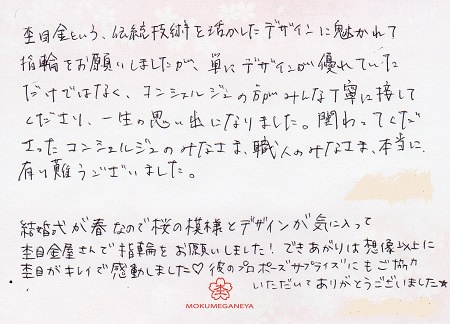 杢目金という、伝統技術を活かしたデザインに魅かれて
指輪をお願いしましたが、単にデザインが優れていた
だけではなく、コンシェルジュの方がみんな丁寧に接して
くださり、一生の思い出になりました。関わってくだ
さったコンシェルジュのみなさま、職人のみなさま、本当に
有り難うございました。
結婚式が春なので桜の模様とデザインが気に入って
杢目金屋さんで指輪をお願いしました！できあがりは想像以上に
杢目がキレイで感動しました♡彼のプロポーズサプライズにもご協力
いただいてありがとうございました★
MOKUMEGANEYA